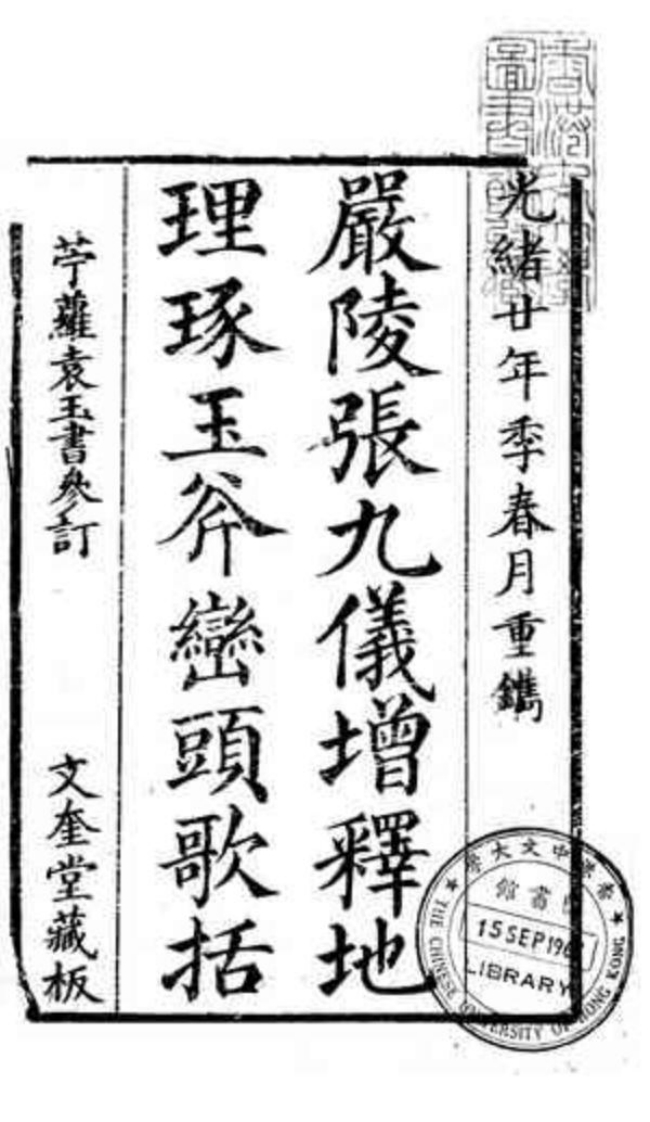 光緒廿年季春月重鐫
嚴陵張九儀增釋地
理琢玉斧巒頭歌括
苧蘿袁玉書參訂
文奎堂藏板
中文大學
書館
15 SEP 196
LIBRARY
THE CHINESE UNIVERSITY OF HONG KONG